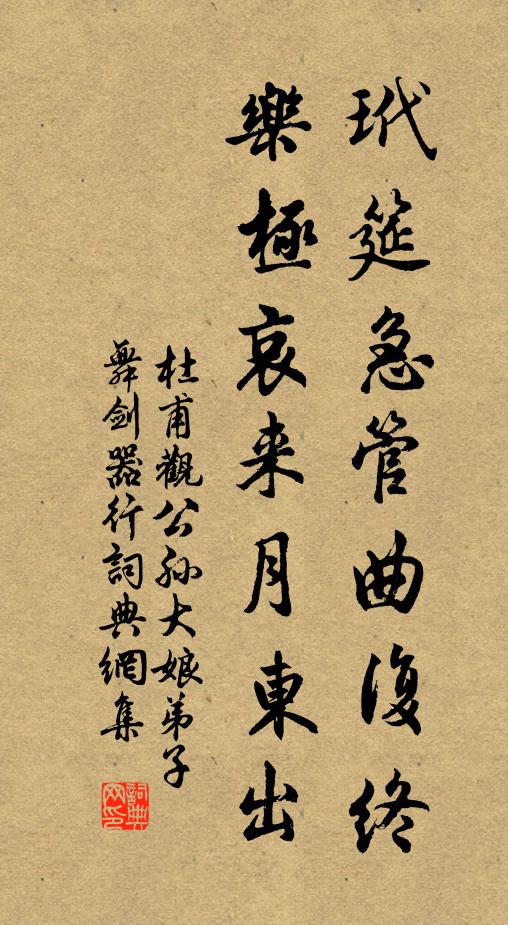 玳筵急管曲復終
樂極哀来月東出
杜甫觀公孙大娘弟子
舞剑器行詞典網集
詞典网印